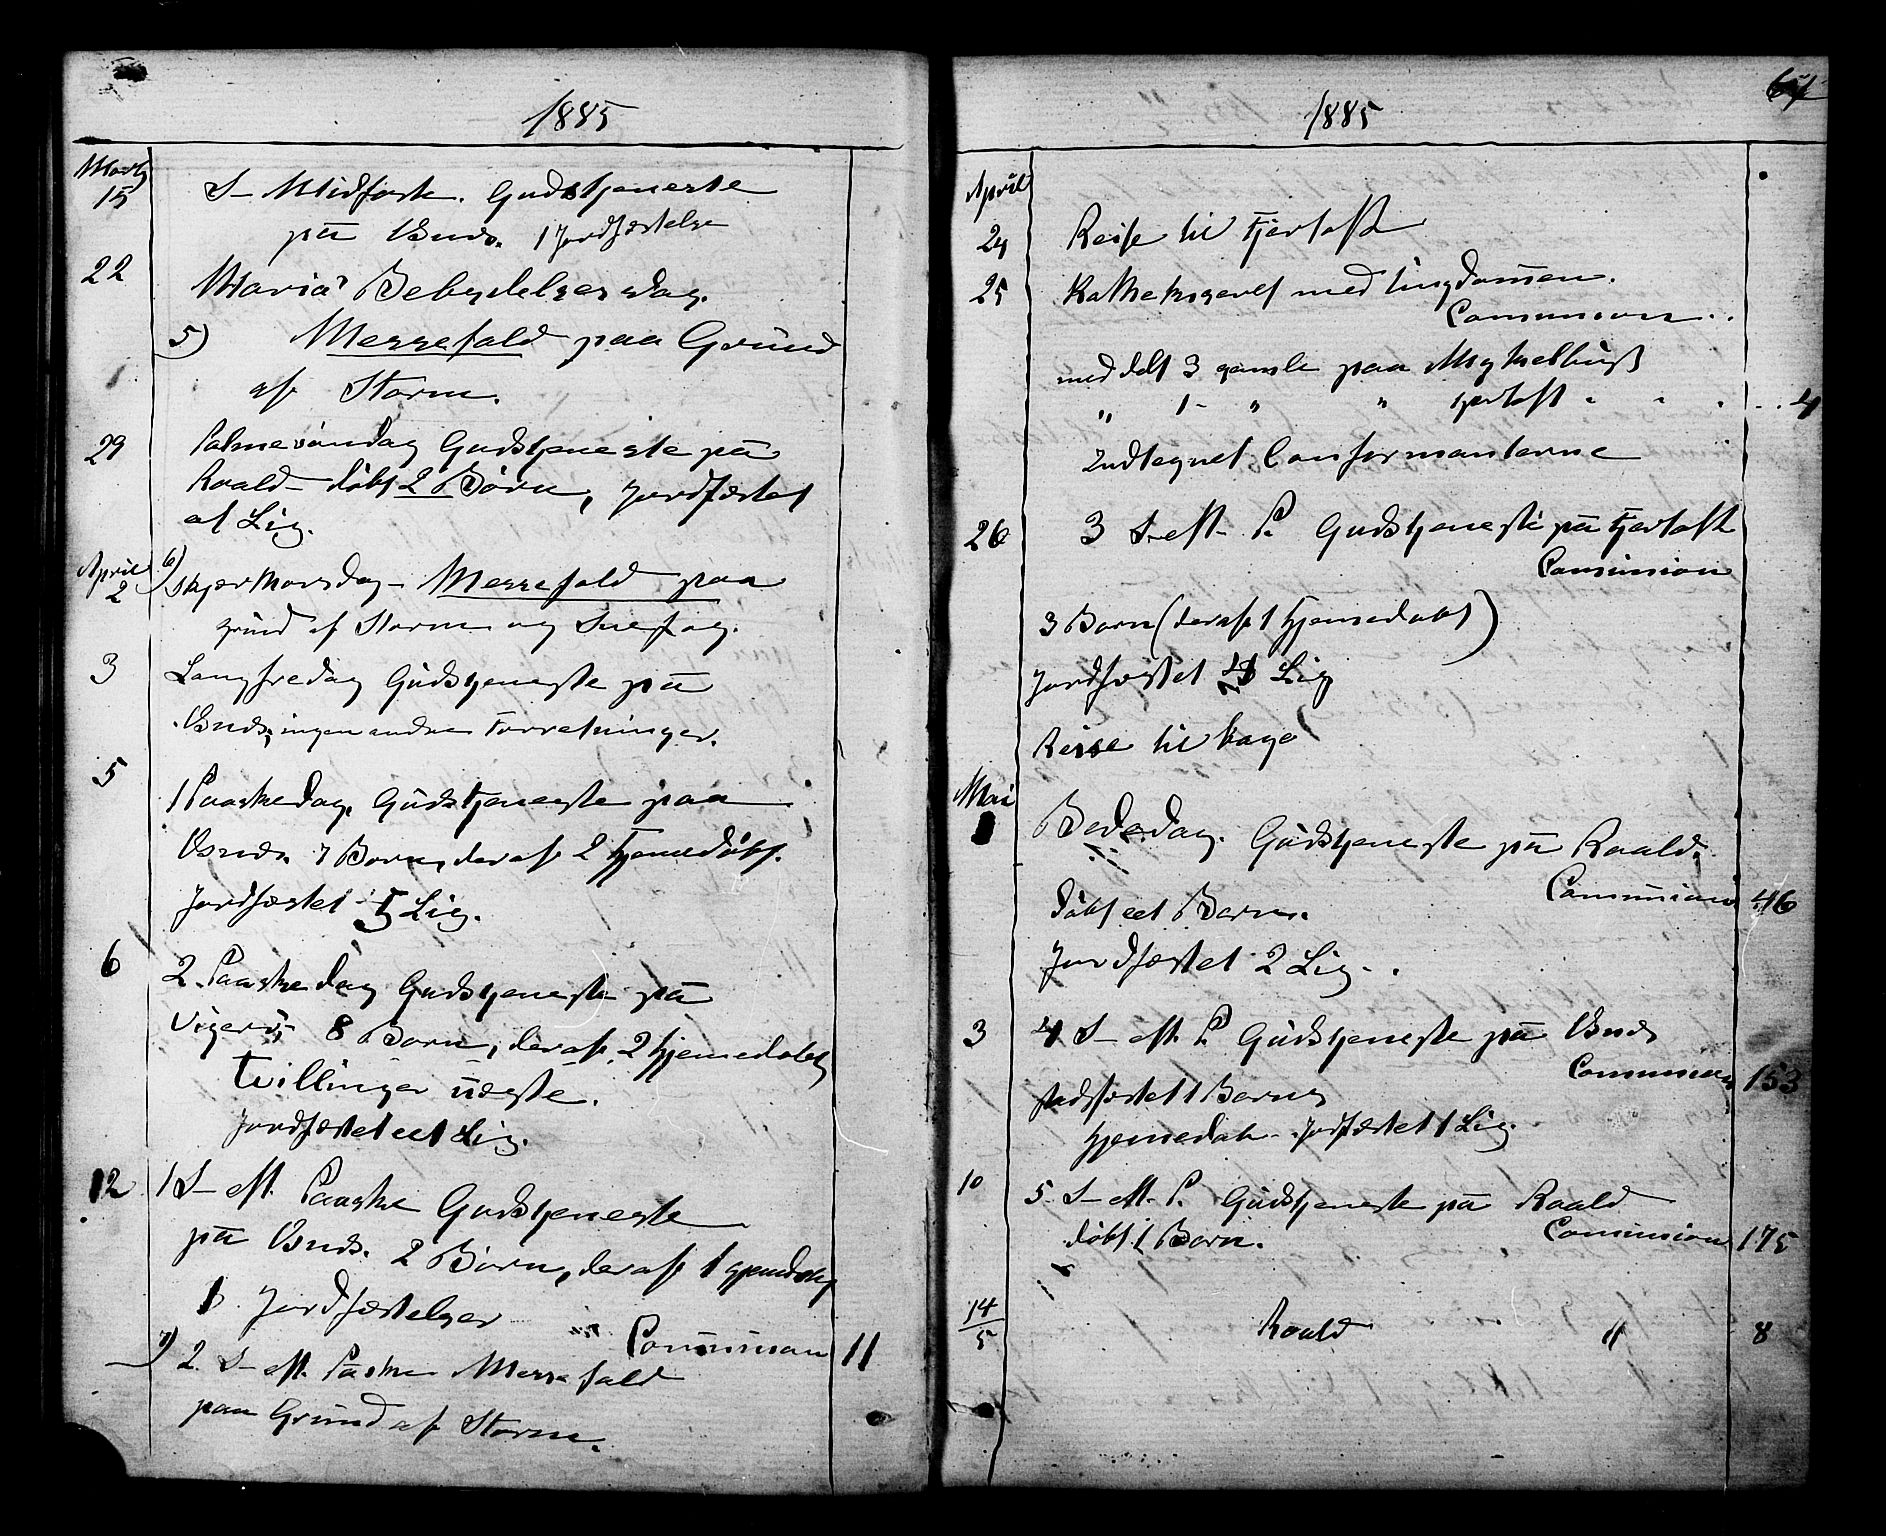 1885
Marts
15 S– Midfaste. Gudstjeneste
på Onds. 1 Jordfæstelse
22 Mariæ Bebudelsesdag.
5) Messefald paa Grund
af Storm.
29 Palmesöndag Gudstjeneste på
Roald döbt 2 Börn, Jordfæstet
et Lig.
April 2 6) Skjærthorsdag – Messefald paa
grund af Storm og Snefog.
3 Langfredag Gudstjeneste på
Onds, ingen andre Forretninger.
5 1 Paaskedag. Gudstjeneste paa
Onds. 7 Born, deraf 2 hjemedöbt.
Jordfæstet 5 Lig.
6 2. Paaskedag Gudstjeneste på
Vigerö, 8 Born, deraf 2 hjemedobte
Tvillinger uægte.
Jordfæstet eet Lig.
12 1 S– eft. Paaske Gudstjeneste
på Onds. 2 Börn, deraf 1
1 Jordfæstelser
Comunion 11
7) 2. S– eft. Paaske Messefald
paa Grund af Storm.
1885
April
24 Reise til Fjertoft
25 Kathekiseret med Ungdommen.
Comunion
meddelt 3 gamle paa Myklebust
" 1 – " " Fjertoft 4
Indtegnet Confirmanterne
26 3 S– eft. P. Gudstjeneste på Fjertoft
Comunion
3 Born (deraf 1 hjemedobt)
Jordfæstet Lig
Reise tilbage
Mai
1 Bededag. Gudstjeneste på Roald.
Comunion 46
döbt eet Barn.
Jordfæstet 2 Lig.
3 4 S– eft. P. Gudstjeneste på Onds
Comunion 153
stadfæstet 1 Barns
hjemedaab. Jordfæstet 1 Lig.
10 5 S– eft. P. Gudstjeneste på Roald
döbt 1 Barn. Comunion 175
14/5 Roald " 8